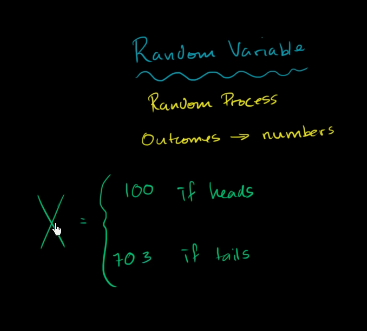 Random Variable
Random Process
Outcomes → numbers
X = { 100 if heads
703 if tails